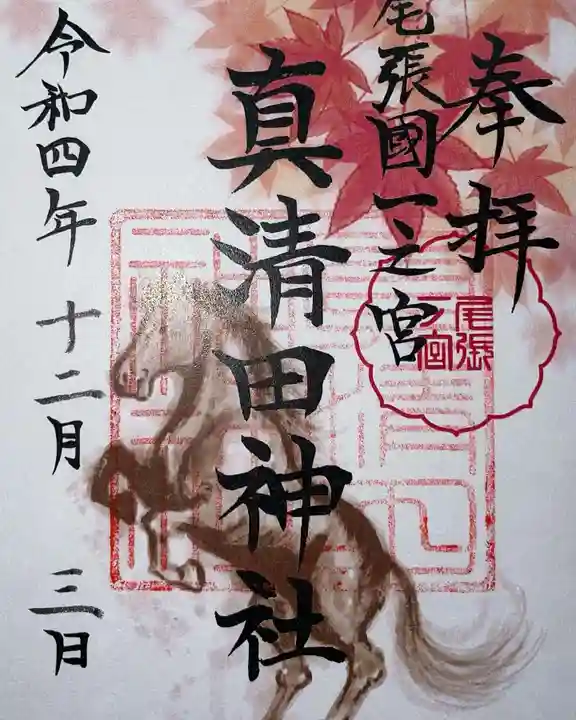 奉拝
尾張國一之宮
尾張
一宮
真清田神社
令和四年 十二月 三日